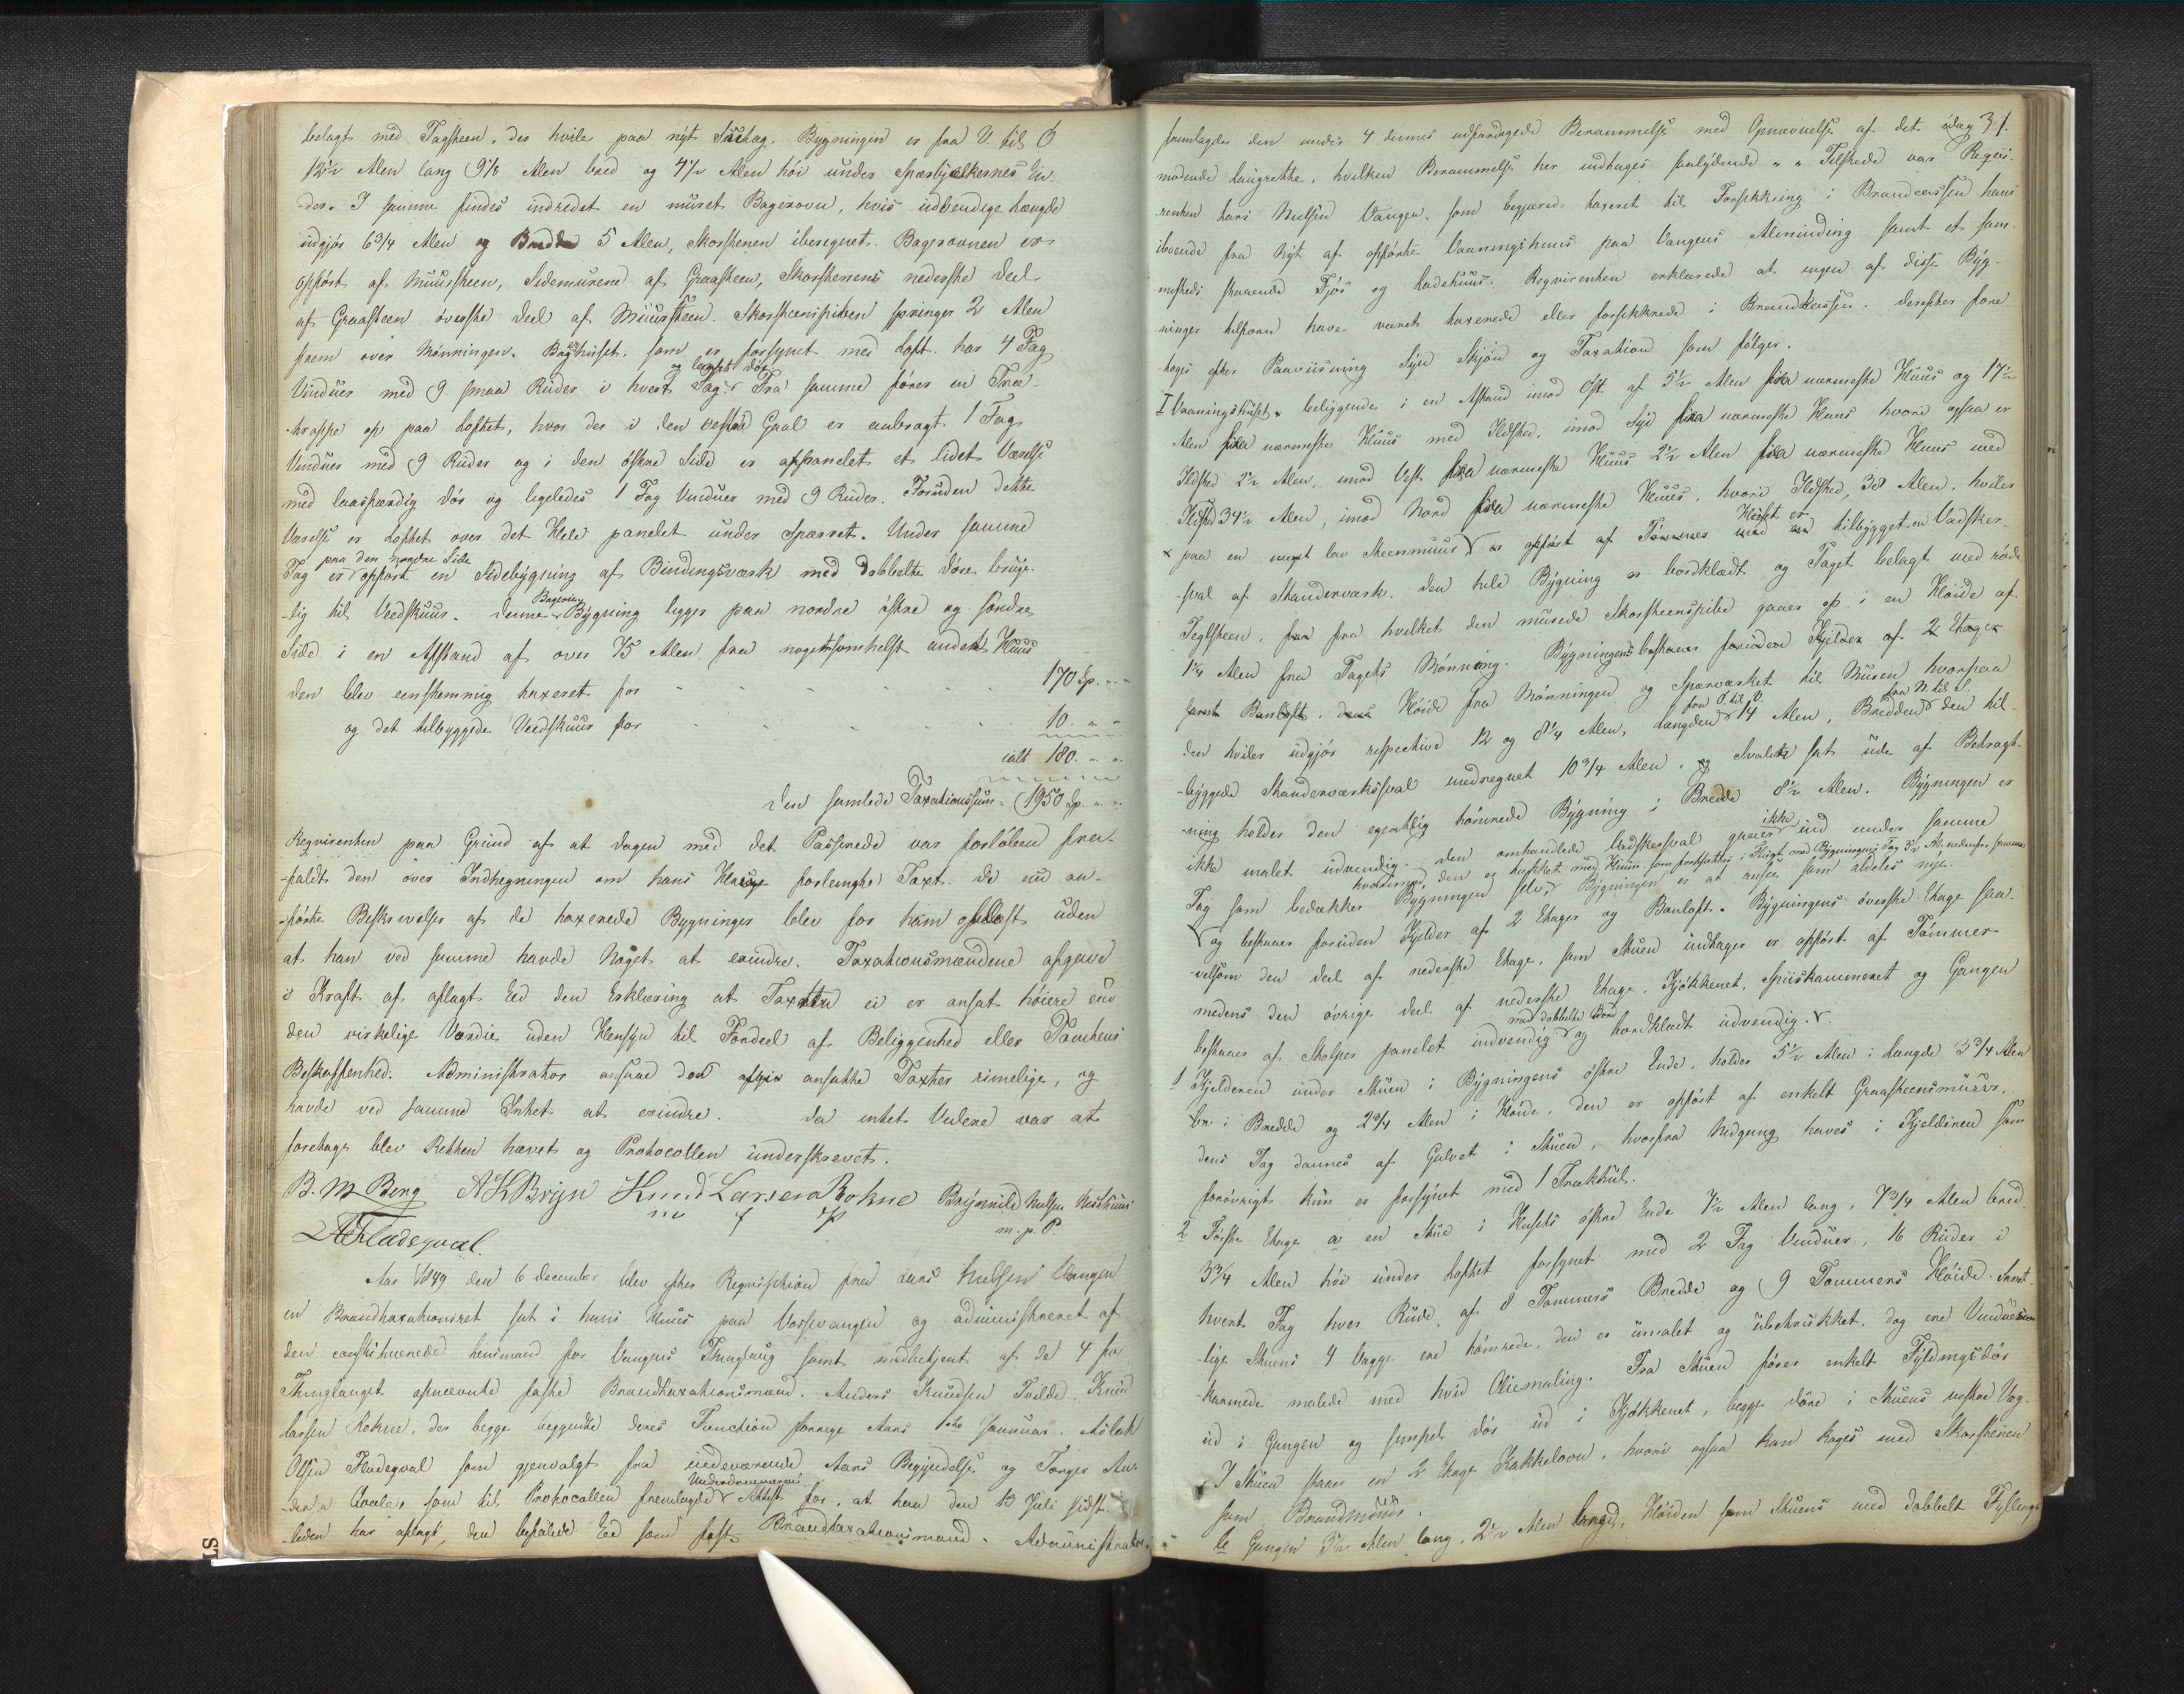 belagt med Tagsteen, der hvile paa nyt Sutag. Bygningen er fra V. til Ö
12½ Alen lang 9⅛ Alen bred og 4½ Alen høi under Spærbjelkernes En-
der. I samme findes indredet en muret Bagerovn, hvis udvendige Længde
udgjør 6¾ Alen og Bredde 5 Alen, Skorstenen iberegnet. Bagerovnen er
opført af Muursteen, Sidemurene af Graasteen, Skorstenens nederste Deel
af Graasteen øverste Deel af Muursteen. Skorsteenspiben springer 2 Alen
frem over Mønningen. Bagerhuset, som er forsynet med Loft har 4 Fag
og læset dør
Vinduer med 9 smaa Ruder i hvert Fag. Fra samme fører en Træ-
trappe op paa Loftet, hvor der i den vestre Gavl er anbragt 1 Fag
Vinduer med 9 Ruder og i den østre Side er afpanelet et lidet Værelse
med laasfærdig Dør og ligeledes 1 Fag Vinduer med 9 Ruder. Foruden dette
Værelse er Loftet over det Hele panelet under Sparret. Under samme
paa den nordre Side
Tag er opført en Sidebygning af Bindingsværk med dobbelte Døre bruge-
lig til Vedskuur. Denne Bagerie Bygning ligger paa nordre østre og søndre
Side i en Afstand af over 75 Alen fra nogetsomhelst andet Huus
den blev eenstemmig taxeret for - - - 170 Sp. " "
og det tilbyggede Vedskuur for - - - 10 " "
ialt 180 " "
Den samlede Taxationssum = 1950 Sp. " "
Reqvirenten paa Grund af at Dagen med det Passerede var forløben fra-
faldt den over Indhegningen om hans Hauge forlangte Taxt. De nu an-
førte Beskrivelser af de taxerede Bygninger blev for ham oplæst uden
at han ved samme havde Noget at erindre. Taxationsmændene afgave
i Kraft af aflagt Eed den Erklæring at Taxten ei er ansat høiere end
den virkelige Værdie uden Hensyn til Fordeel af Beliggenhed eller Tomtens
Beskaffenhed. Administrator ansaae den ansatte Taxter rimelige, og
havde ved samme Intet at erindre. Da intet Videre var at
foretage blev Retten hævet og Protocollen underskrevet.
B. M. Berg A K Bryn Knud Larsen Rokne Brynnild Nielsen Nesthuus
m. p. P.
A O Fladeqval.
Aar 1849 den 6 December blev efter Reqvisition fra Lars Nielsen Vangen
en Brandtaxationsret sat i hans Huus paa Vossevangen og administreret af
den constituerede Lensmand for Vangens Thinglaug samt medbetjent af de 4 for
Thinglauget opnævnte faste Brandtaxationsmænd. Anders Knudsen Tvilde, Knud
Larsen Rokne, der begge begyndte deres Function forrige Aars 1ste Januar. Aslak
Olsen Fladeqval som gjenvalgt fra indeværende Aars Begyndelse og Torger An-
Underdommerens
ders som til Protocollen fremlagde Attest for, at han den 13 Juli sidst-
leden har aflagt den befalede Eed som fast Brandtaxationsmand. Administrator
31.
fremlagde den under 4 dennes udfærdigede Berammelse med Opnævnelse af det idag
mødende Laugrette, hvilken Berammelse her indtages saalydende " " Tilstede var Reqvi-
renten Lars Nielsen Vangen, som begjærede taxeret til Forsikkring i Brandcassen hans
iboende fra Nyt af opførte Vaaningshuus paa Vangens Alminding samt et sam-
mesteds staaende Fjøs og Ladehuus. Reqvirenten erklærede at ingen af disse Byg-
ninger tilforn have været taxerede eller forsikkrede i Brandkassen. Derefter fore-
toges efter Paaviisning Syn Skjøn og Taxation som følger.
I Vaaningshuset beliggende i en Afstand imod Öst af 5½ Alen fra nærmeste Huus og 17½
Alen fra nærmeste Huus med Ildsted, imod Syd fra nærmeste Huus hvori ogsaa er
Ildsted 2½ Alen, imod Vest fra nærmeste Huus 2½ Alen fra nærmeste Huus med
Ildsted 34½ Alen, imod Nord fra nærmeste Huus, hvori Ildsted, 38 Alen, hviler
Huset er
paa en lav Steenmuur opført af Tømmer med en tilbygget Vadsker-
sval af Standerværk. Den hele Bygning er bordklædt og Taget belagt med røde
Teglsteen, fra hvilket den murede Skorsteenspibe gaaer op i en Høide af
1¼ Alen fra Tagets Mønning. Bygningens bestaaer foruden Kjelder af 2 Etager
samt Banloft. dens Høide fra Mønningen og Sparværket til Muren hvorpaa
fra Ö. til V. fra N. til S.
den hviler udgjør respective 12 og 8¼ Alen, Længden 14 Alen, Bredden den til-
byggede Standerværkssval medregnet 10¾ Alen. Svalen sat ude af Betragt-
ning holder den egentlig tømrede Bygning i Bredde 8½ Alen. Bygningen er
ikke
ikke malet udvendig. Den omhandlede Vadskersval gaaer ind under samme
Tag som bedækker Bygningen selv. Bygningen er at ansee som aldeles nye.
og bestaaer foruden Kjelder af 2 Etager og Banloft. Bygningens øverste Etage saa-
velsom den Deel af nederste Etage, som Stuen indtager er opført af Tømmer
medens den øvrige Deel af nederste Etage, Kjøkkenet, Spiiskammeret og Gangen
med dobbelte Bord
bestaaer af Stolper panelet indvendig og bordklædt udvendig.
1 Kjelderen under Stuen i Bygningens østre Ende, holder 5½ Alen i Længde 3¾ Alen
i Bredde og 2¾ Alen i Høide, den er opført af enkelt Graasteensmuur,
dens Tag dannes af Gulvet i Stuen, hvorfra Nedgang haves i Kjelderen som
forøvrigt kun er forsynet med 1 Trækhul.
2 Første Etage a en Stue i Husets østre Ende 7½ Alen lang, 7¾ Alen bred
3¾ Alen høi under Loftet forsynet med 2 Fag Vinduer, 16 Ruder i
hvert Fag hver Rude af 8 Tommers Bredde og 9 Tommers Høide. Samt-
lige Stuens 4 Vægge ere tømrede, den er umalet og ubetrukket, dog ere Vindues-
karmene malede med hvid Oliemaling. Fra Stuen fører enkelt Fyldingsdør
ud i Gangen og simpel Dør ud i Kjøkkenet, begge Døre i Stuens vestre Væg.
I Stuen staaer en 2 Etage Kakkelovn, hvori ogsaa kan koges med Skorstenen
som Brandmuur.
b Gangen 3½ Alen lang, 2½ Alen bred, Høiden som Stuens med dobbelt Fyllings